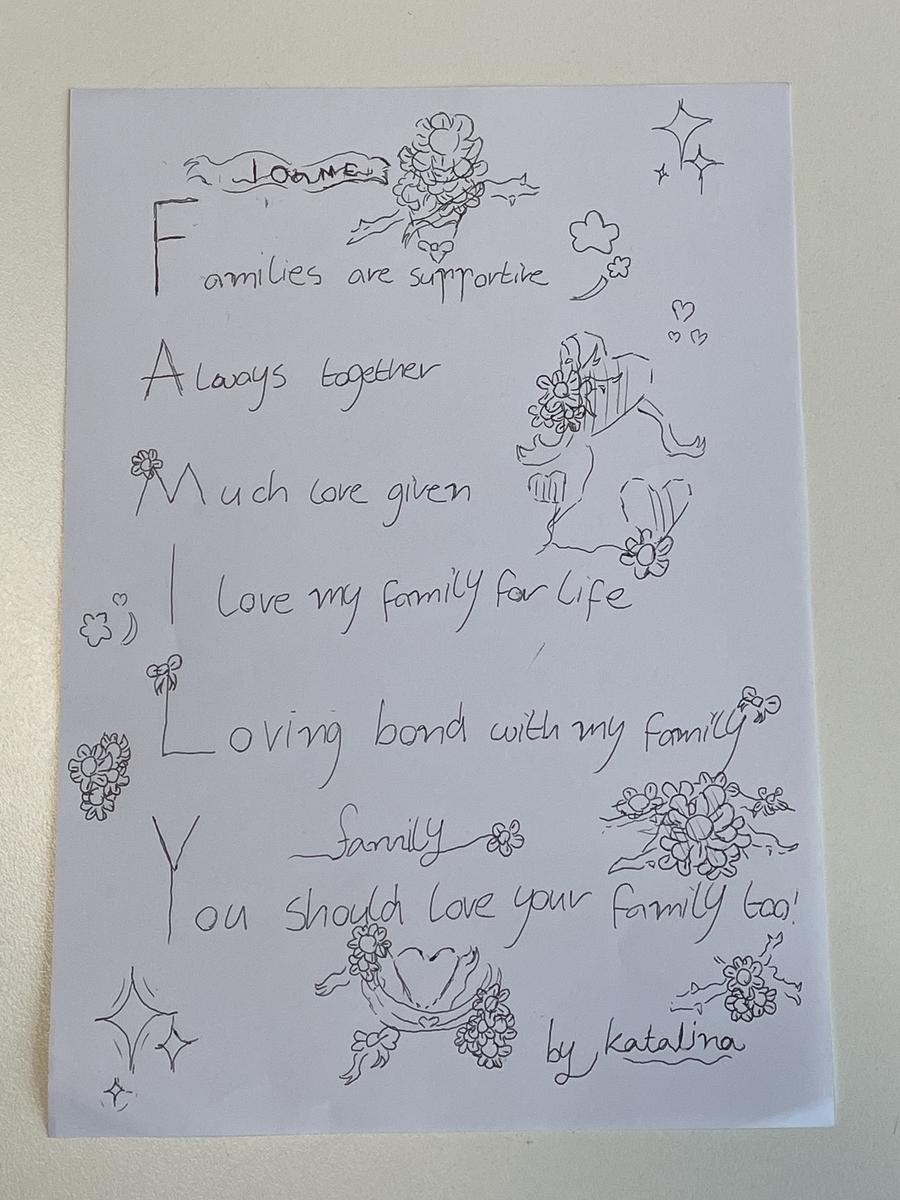 Families are supportive
Always together
Much love given
I love my family for life
Loving bond with my family
family
You should love your family too!
by katalina